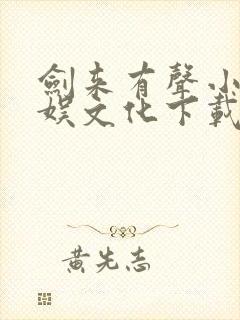 劍来有聲小
娱文化下載
黄先志